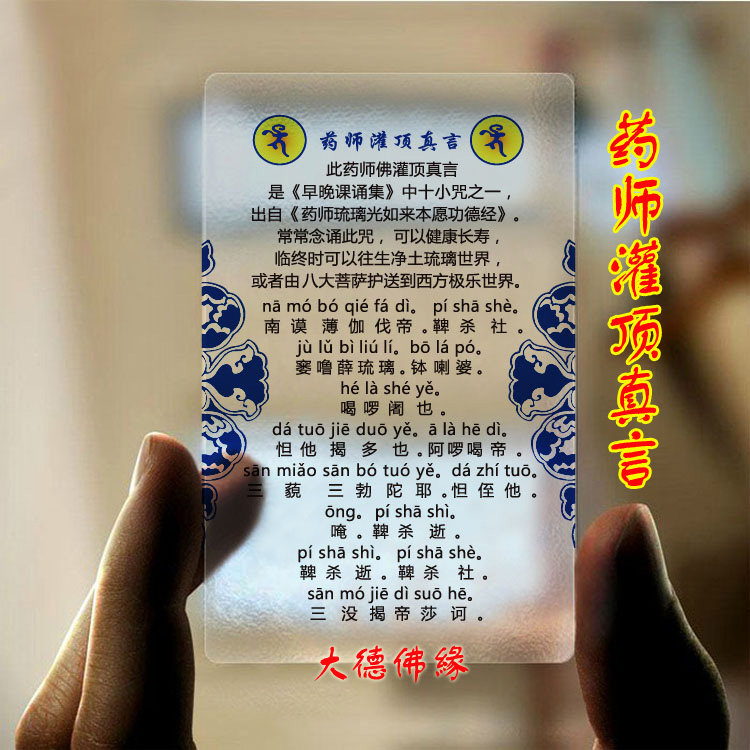 药师灌顶真言
此药师佛灌顶真言
是《早晚课诵集》中十小咒之一，
出自《药师琉璃光如来本愿功德经》。
常常念诵此咒，可以健康长寿，
临终时可以往生净土琉璃世界，
或者由八大菩萨护送到西方极乐世界。
nā mó bó qié fá dì。 pí shā shè。
南 谟 薄 伽 伐 帝 。鞞 杀 社 。
jù lǔ bì liú lí。bō lá pó。
窭噜薜琉璃。钵喇婆。
hé là shé yě。
喝 啰 阇 也 。
dá tuō jiē duō yě。ā là hē dì。
怛 他 揭 多 也 。阿啰喝帝 。
sān miǎo sān bó tuó yě。dá zhí tuō。
三 藐 三 勃 陀 耶 。怛 侄 他 。
ōng。pí shā shì。
唵 。 鞞 杀 逝 。
pí shā shì。 pí shā shè。
鞞 杀 逝 。鞞 杀 社 。
sān mó jiē dì suō hē。
三 没 揭 帝 莎 诃 。
大德佛緣
药师灌顶真言